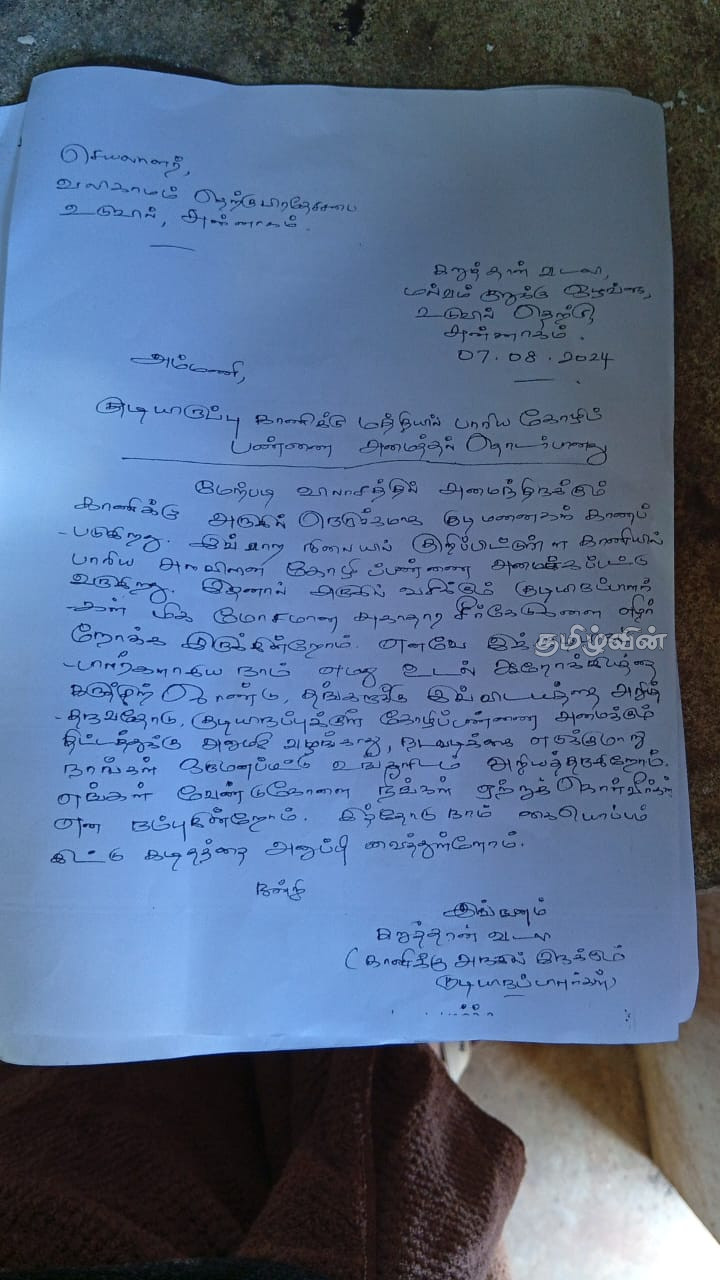 செயலாளர்,
வலிகாமம் தெற்கு பிரதேசசபை
உடுவில், சுன்னாகம்.
கறுத்தான் வடலி,
மல்வம் குறுக்கு ஒழுங்கை,
உடுவில் தெற்கு,
சுன்னாகம்.
07.08.2024
அம்மணி,
குடியிருப்பு காணிக்கு மத்தியில் பாரிய கோழிப்
பண்ணை அமைத்தல் தொடர்பானது
மேற்படி விலாசத்தில் அமைந்திருக்கும்
காணிக்கு அருகில் நெருக்கமாக குடிமனைகள் காணப்
-படுகிறது. இவ்வாறு நிலையில் குறிப்பிட்டுள்ள காணியில்
பாரிய அளவிலான கோழிப்பண்ணை அமைக்கப்பட்டு
வருகிறது. இதனால் அருகில் வசிக்கும் குடியிருப்பாளர்
-கள் மிக மோசமான சுகாதார சீர்கேடுகளை எதிர்
நோக்க இருக்கின்றோம். எனவே இக்
-பாளர்களாகிய நாம் எமது உடல் ஆரோக்கியத்தை
கருத்திற் கொண்டு, தங்களுக்கு இவ்விடயத்தை அறியத்
-தருவதோடு, குடியிருப்புக்குள் கோழிப்பண்ணை அமைக்கும்
திட்டத்துக்கு அனுமதி வழங்காது, நடவடிக்கை எடுக்குமாறு
நாங்கள் உங்களிடம் அறியத்தருகிறோம்.
எங்கள் வேண்டுகோளை நீங்கள் ஏற்றுக் கொள்வீர்கள்
என நம்புகின்றோம். இத்தோடு நாம் கையொப்பம்
இட்டு கடிதத்தை அனுப்பி வைத்துள்ளோம்.
நன்றி
இங்ஙனம்
கறுத்தான் வடலி
(காணிக்கு அருகில் இருக்கும்
குடியிருப்பாளர்கள்)
தமிழ்வின்